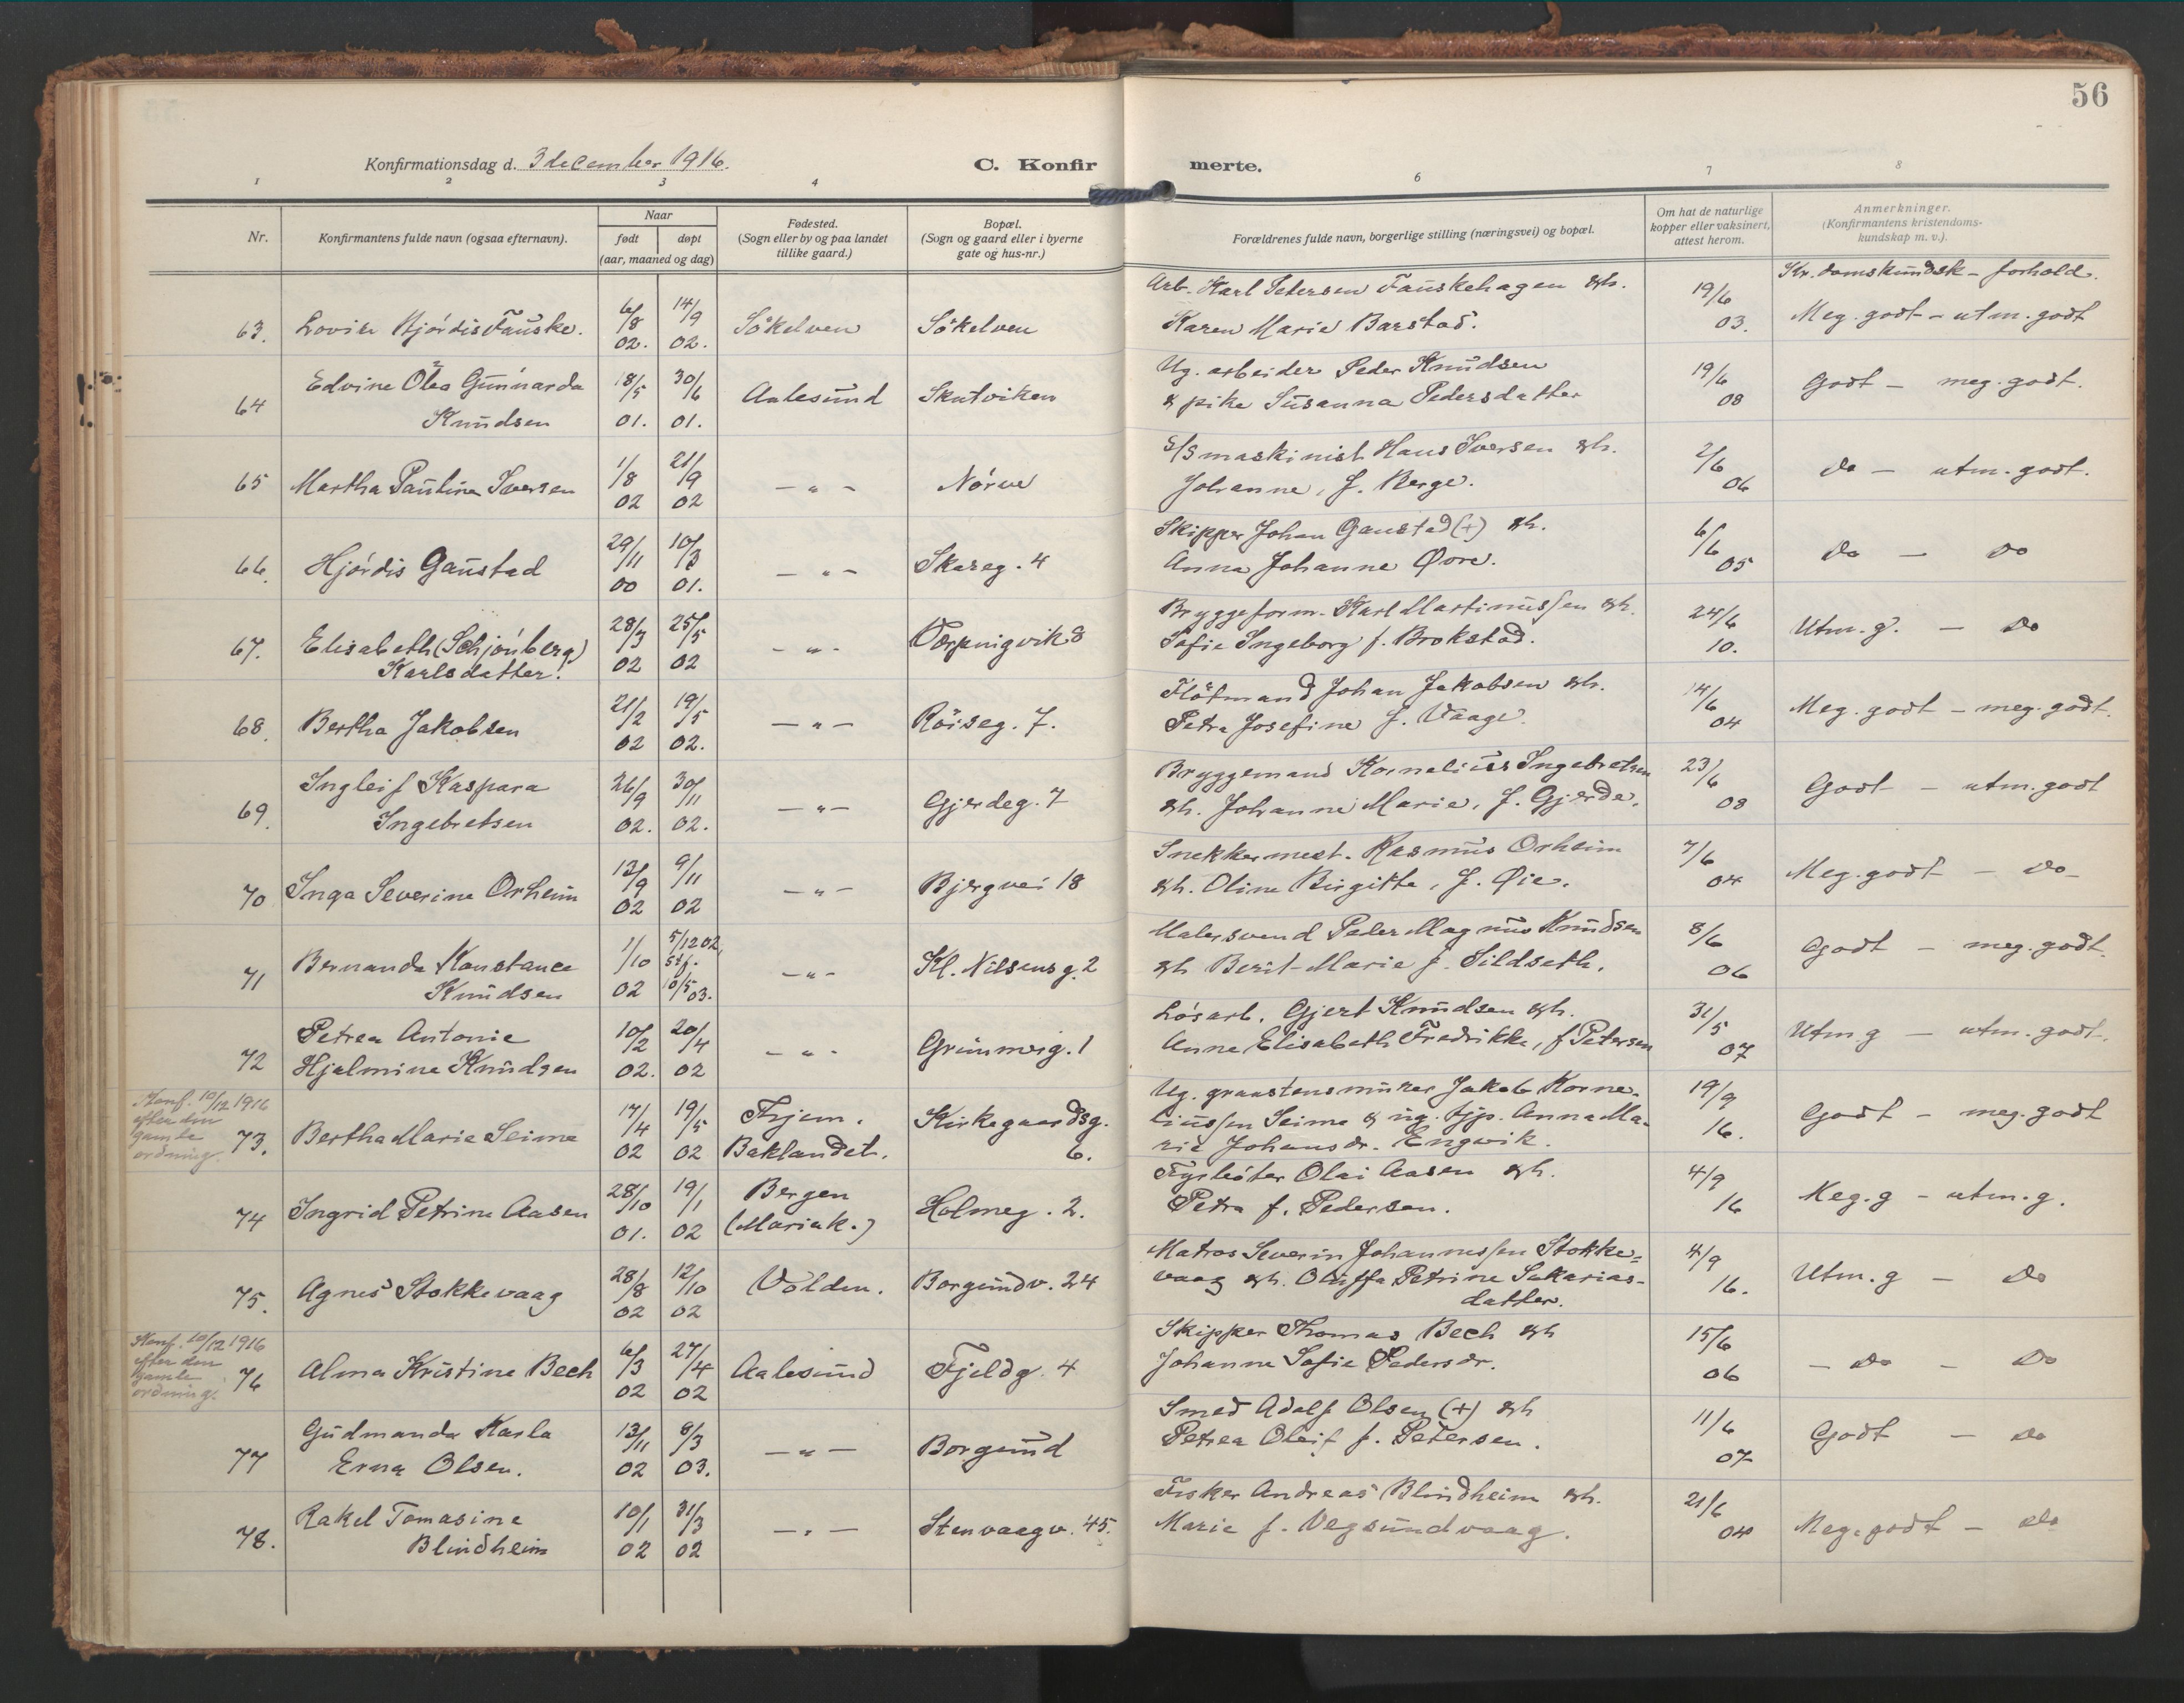 56
Konfirmationsdag d. 3 december 1916.
C. Konfir merte.
1 2 3 4 6 7 8
Nr.
Konfirmantens fulde navn (ogsaa efternavn).
Naar
født døpt
(aar, maaned og dag)
Fødested.
(Sogn eller by og paa landet
tillike gaard.)
Bopæl.
(Sogn og gaard eller i byerne
gate og hus-nr.)
Forældrenes fulde navn, borgerlige stilling (næringsvei) og bopæl.
Om hat de naturlige
kopper eller vaksinert,
attest herom.
Anmerkninger.
(Konfirmantens kristendoms-
kundskap m. v.).
Kr.domskundsk - forhold.
63. Lovise Hjördis Fauske. 6/8 02. 14/9 02. Sökelven Sökelven
Arb. Karl Petersen Fauskehagen & h.
Karen Marie Barstad. 19/6 03. Meg. godt - utm. godt
64 Edvine Olea Gunnarda
Knudsen 18/5 01. 30/6 01. Aalesund Skutviken
Ug. arbeider Peder Knudsen
& pike Susanna Pedersdatter 19/6 08 Godt - meg. godt.
65 Martha Paulina Iversen 1/8 02 21/9 02 - " - Nörve
S/S maskinist Hans Iversen & h.
Johanne, f. Berge. 2/6 06 do - utm. godt.
66. Hjördis Gaustad 29/11 00 10/3 01. - " - Skareg. 4
Skipper Johan Gaustad (+) & h.
Anna Johanne Øvre. 6/6 05 do - do
67. Elisabeth (Schjönberg)
Karlsdatter. 28/3 02 25/5 02 - " -
Bryggeform. Karl Martinussen & h.
Sofie Ingeborg f. Brokstad. 24/6 10. Utm. g. - do
68. Bertha Jakobsen 21/2 02 19/5 02. - " - Röiseg. 7.
Flötmand Johan Jakobsen & h.
Petra Josefine f. Vaage. 14/6 04 Meg. godt - meg. godt.
69. Ingleif Kaspara
Ingebretsen 26/9 02. 30/11 02. - " - Gjerdeg. 7
Bryggemand Kornelius Ingebretsen
& h. Johanne Marie, f. Gjerde. 23/6 08 Godt - utm. godt
70 Inga Severine Orheim 13/9 02 9/11 02 - " - Bjergvei 18
Snekkermest. Rasmus Orheim
& h. Oline Birgitte, f. Øie. 7/6 04 Meg. godt - do -
71 Bernanda Konstance
Knudsen 1/10 02 5/12 02, stf. 10/5 03. - " - Kl. Nilsens g. 2
Malersvend Peder Magnus Knudsen
& h Berit-Marie f. Sildseth. 8/6 06 Godt - meg. godt.
72 Petrea Antonie
Hjalmina Knudsen 10/2 02. 20/4 02 - " - Grimmerg. 1
Lösarb. Gjert Knudsen & h.
Anne Elisabeth Fredrikke, f Petersen 31/5 07 Utm. g - utm. godt.
Konf. 10/12 1916
efter den
gamle
ordning. 73. Bertha Marie Seime 17/4 02 19/5 02 Thjem.
Baklandet. Kirkegaardsg.
6.
Ug. graastensmurer Jakob Korne-
liussen Seime & ug. tjp. Anna Ma-
rie Johansdr. Engvik. 19/9 16. Godt - meg. godt
74 Ingrid Petrine Aasen 28/10 01. 19/1 02 Bergen
(Mariak.) Holmeg. 2.
Fyrböter Olai Aasen & h.
Petra f. Pedersen. 4/9 16 Meg. g - utm. g.
75. Agnes Stokkevaag 28/8 02 12/10 02 Volden. Borgundv. 24
Matros Severin Johannessen Stokke-
vaag & h. Oluffa Petrine Sakarias-
datter. 4/9 16. Utm. g - do
Konf. 10/12 1916
efter den
gamle
ordning. 76 Alma Kristine Bech 6/3 02 27/4 02 Aalesund Fjeldg. 4
Skipper Thomas Bech & h
Johanne Sofie Pedersdr. 15/6 06 - do - do
77 Gudmanda Karla
Erna Olsen. 13/11 02 8/3 03. - " - Borgund
Smed Adolf Olsen (+) & h
Petrea Oleif f. Petersen. 11/6 07 Godt - do
78. Rakel Tomasine
Blindheim 10/1 02 31/3 02 - " - Stenvaagv. 45.
Fisker Andreas Blindheim & h.
Marie f. Vegsundvaag. 21/6 04 Meg. godt - do